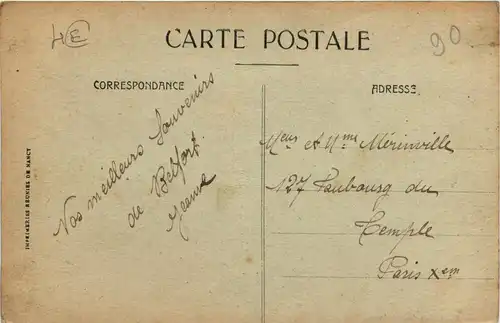 4€
CARTE POSTALE
90
CORRESPONDANCE
ADRESSE
Nos meilleurs Souvenirs
de Belfort
Meur et Mme Mérinville
127 Faubourg du
Temple
Paris Xem
IMPRIMERIES REUNIES DE NANCY